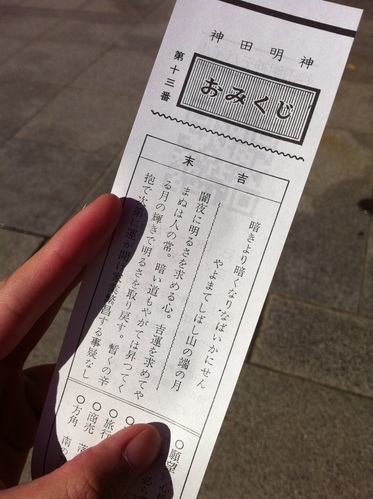 神田明神
第十三番
おみくじ
末吉
暗きより暗くなりなばいかにせん
やよまてしばし山の端の月
闇夜に明るさを求める心。吉運を求めてや
まぬは人の常。暗い道もやがては昇つてく
る月の輝きで明るさを取り戻す。暫くの辛
抱で次第に運が開け
昌する事疑なし
○願望
○旅行
○商売
○方角 南の